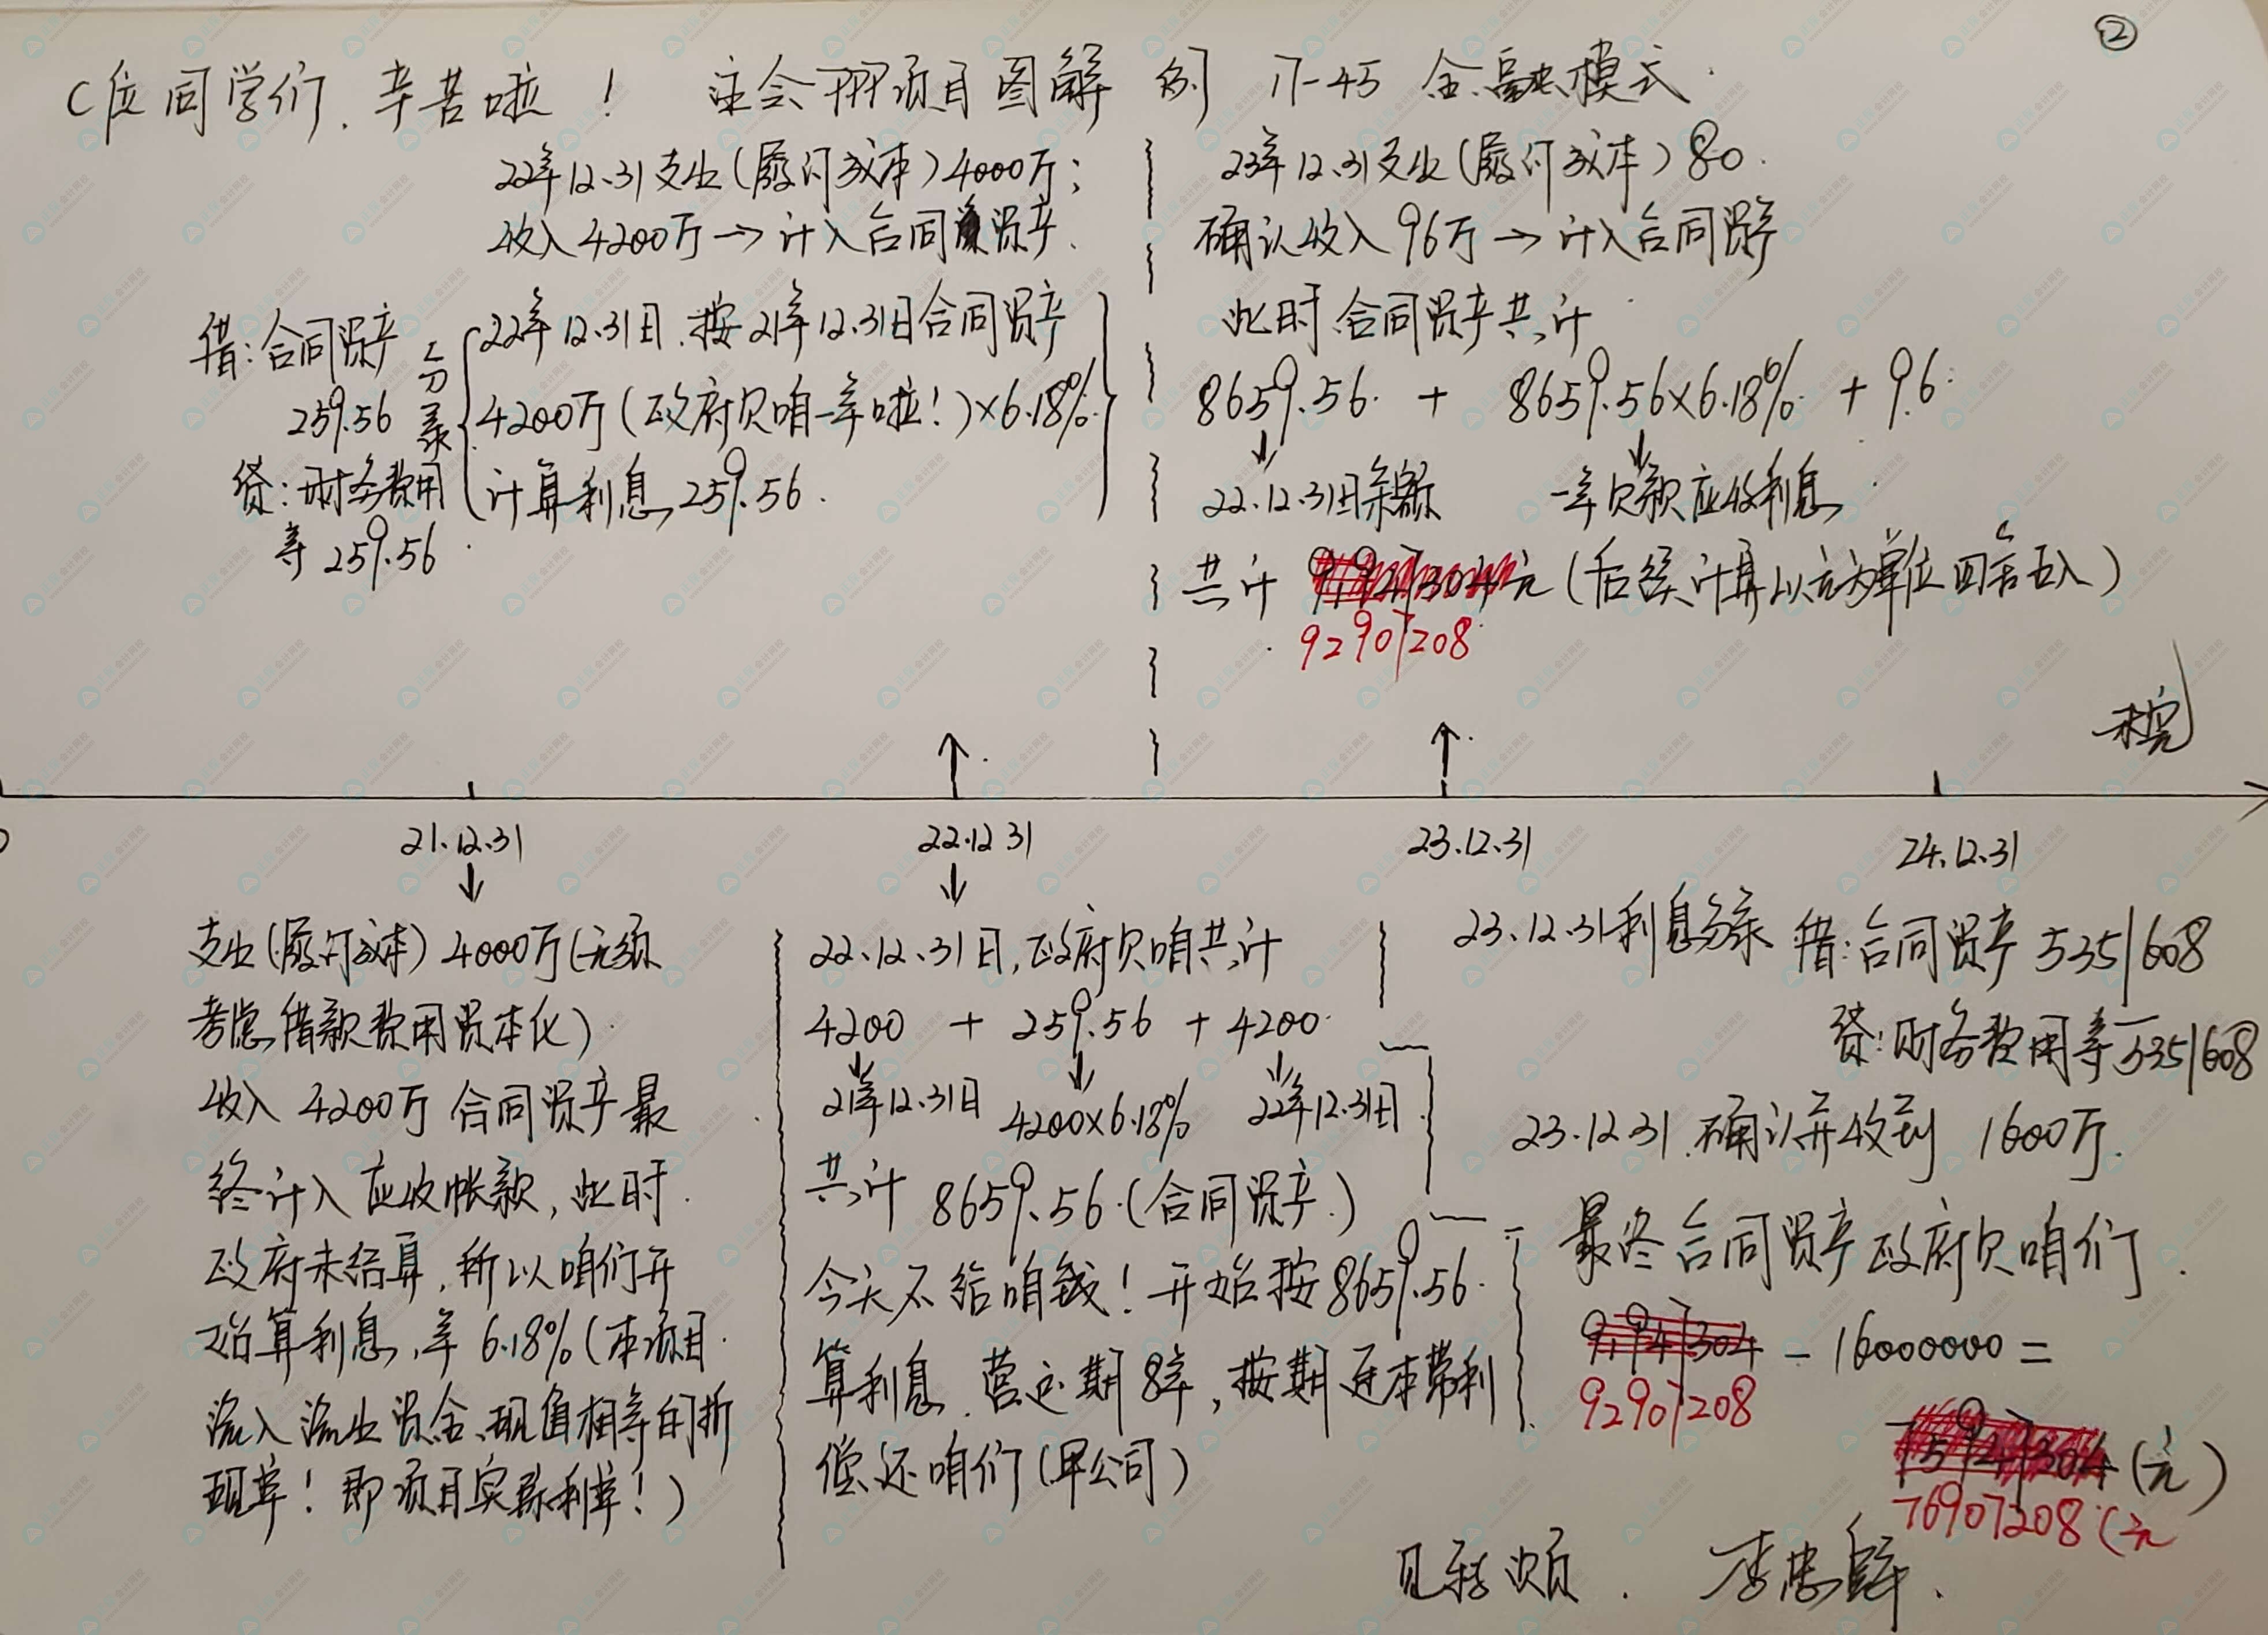 ②
C位同学们、辛苦啦！ 注会PPP项目图解 例 17-45 金融模式.
22年12.31支出(履约成本)4000万;
收入4200万→计入合同资产.
借:合同资产
259.56
贷:财务费用
等 259.56
分录
22年12.31日.按21年12.31日合同资产
4200万(政府欠咱一年啦!)×6.18%
计算利息259.56.
23年12.31支出(履约成本)80.
确认收入96万→计入合同资产
此时合同资产共计
8659.56 + 8659.56×6.18% + 96
22.12.31日余额 一年欠款应收利息
共计 元(后续计算以元为单位四舍五入)
92907208
未完
21.12.31 22.12 31 23.12.31 24.12.31
支出(履约成本)4000万(无须
考虑借款费用资本化)
收入4200万 合同资产最
终计入应收帐款,此时
政府未结算,所以咱们开
始算利息,率6.18%(本项目
流入流出资金现值相等的折
现率!即项目实际利率!)
22.12.31日,政府欠咱共计
4200 + 259.56 + 4200
21年12.31日 4200×6.18% 22年12.31日
共计 8659.56(合同资产)
今天不给咱钱!开始按8659.56
算利息.营运期8年,按期还本带利
偿还咱们(甲公司)
23.12.31利息分录 借:合同资产 5351608
贷:财务费用等5351608
23.12.31.确认并收到 1600万.
最终合同资产政府欠咱们.
- 16000000 =
92907208
(元)
76907208(元
李忠魁.